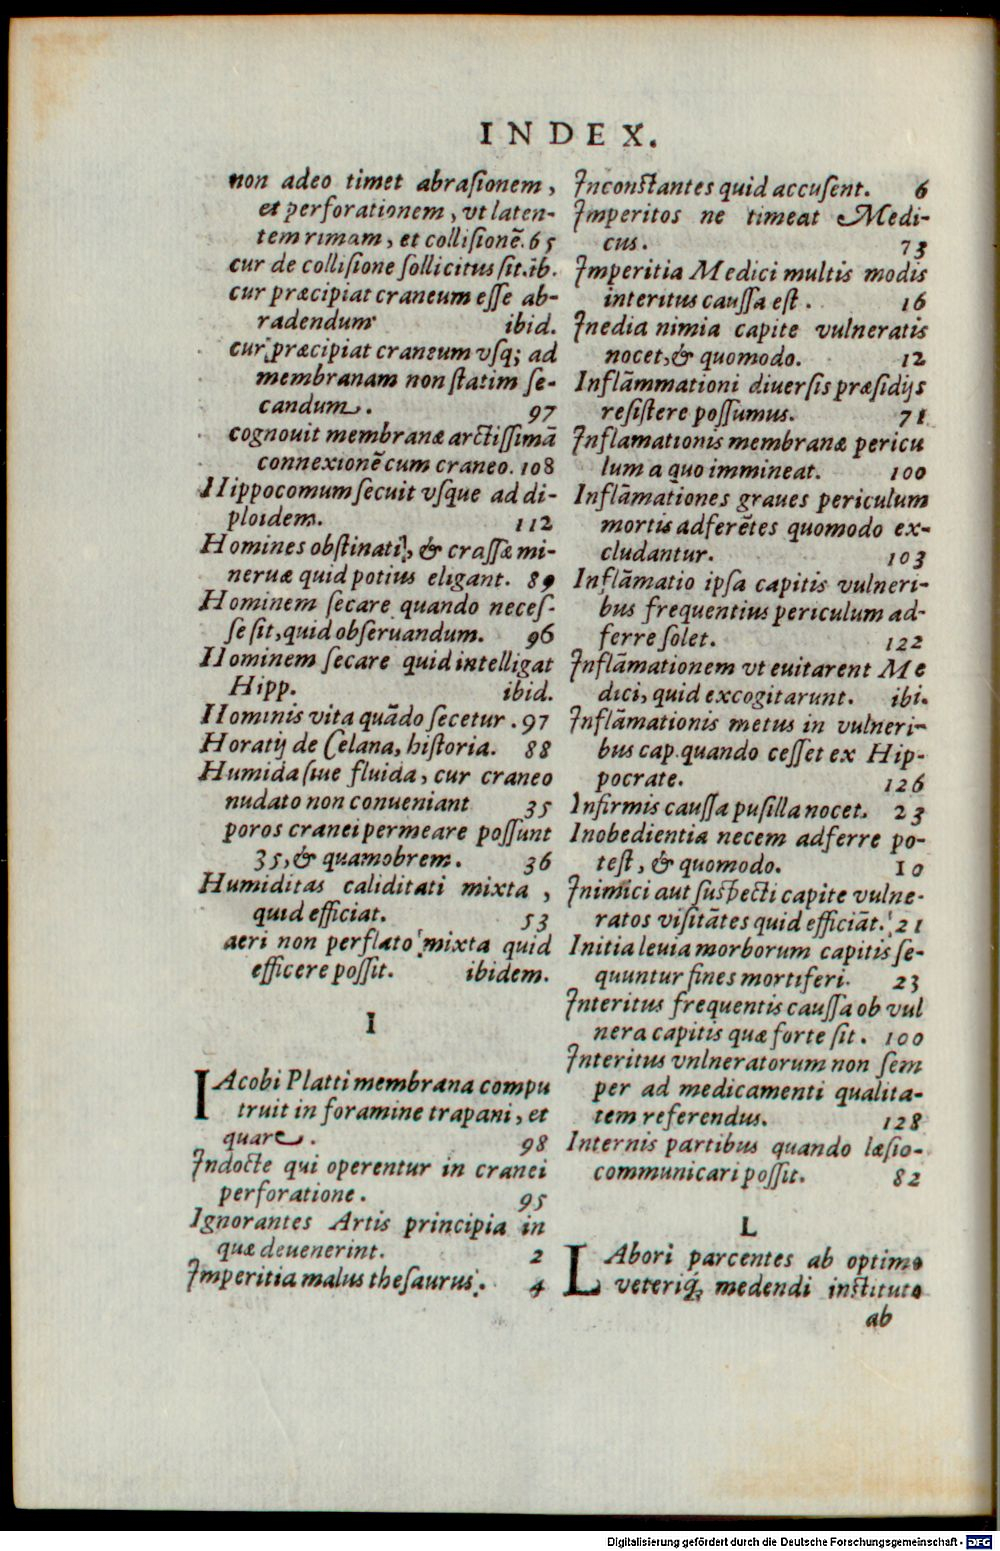 INDEX.
non adeo timet abraſionem,
et perforationem, vt laten-
tem rimam, et colliſionē. 65
cur de colliſione ſollicitus ſit. ib.
cur præcipiat craneum eſſe ab-
radendum ibid.
cur præcipiat craneum vſq; ad
membranam non ſtatim ſe-
candum. 97
cognouit membranæ arctiſſimā
connexionē cum craneo. 108
Hippocomum ſecuit vſque ad di-
ploidem. 112
Homines obſtinati, & craſſæ mi-
neruæ quid potius eligant. 89
Hominem ſecare quando neceſ-
ſe ſit, quid obſeruandum. 96
Hominem ſecare quid intelligat
Hipp. ibid.
Hominis vita quādo ſecetur. 97
Horatij de Celana, hiſtoria. 88
Humida ſiue fluida, cur craneo
nudato non conueniant 35
poros cranei permeare poſſunt
35, & quamobrem. 36
Humiditas caliditati mixta,
quid efficiat. 53
aeri non perflato mixta quid
efficere poſſit. ibidem.
I
IAcobi Platti membrana compu
truit in foramine trapani, et
quare. 98
Indocte qui operentur in cranei
perforatione. 95
Ignorantes Artis principia in
quæ deuenerint. 2
Imperitia malus theſaurus. 4
Inconſtantes quid accuſent. 6
Imperitos ne timeat Medi-
cus. 73
Imperitia Medici multis modis
interitus cauſſa eſt. 16
Inedia nimia capite vulneratis
nocet, & quomodo. 12
Inflāmmationi diuerſis præſidijs
reſiſtere poſſumus. 71
Inflamationis membranæ pericu
lum a quo immineat. 100
Inflāmationes graues periculum
mortis adferētes quomodo ex-
cludantur. 103
Inflāmatio ipſa capitis vulneri-
bus frequentius periculum ad-
ferre ſolet. 122
Inflāmationem vt euitarent Me
dici, quid excogitarunt. ibi.
Inflāmationis metus in vulneri-
bus cap. quando ceſſet ex Hip-
pocrate. 126
Infirmis cauſſa puſilla nocet. 23
Inobedientia necem adferre po-
teſt, & quomodo. 10
Inimici aut ſuſpecti capite vulne-
ratos viſitātes quid efficiāt. 21
Initia leuia morborum capitis ſe-
quuntur fines mortiferi. 23
Interitus frequentis cauſſa ob vul
nera capitis quæ forte ſit. 100
Interitus vnlneratorum non ſem
per ad medicamenti qualita-
tem referendus. 128
Internis partibus quando læſio-
communicari poſſit. 82
L
LAbori parcentes ab optimo
veteriq́; medendi inſtituto
ab
Digitalisierung gefördert durch die Deutsche Forschungsgemeinschaft - DFG